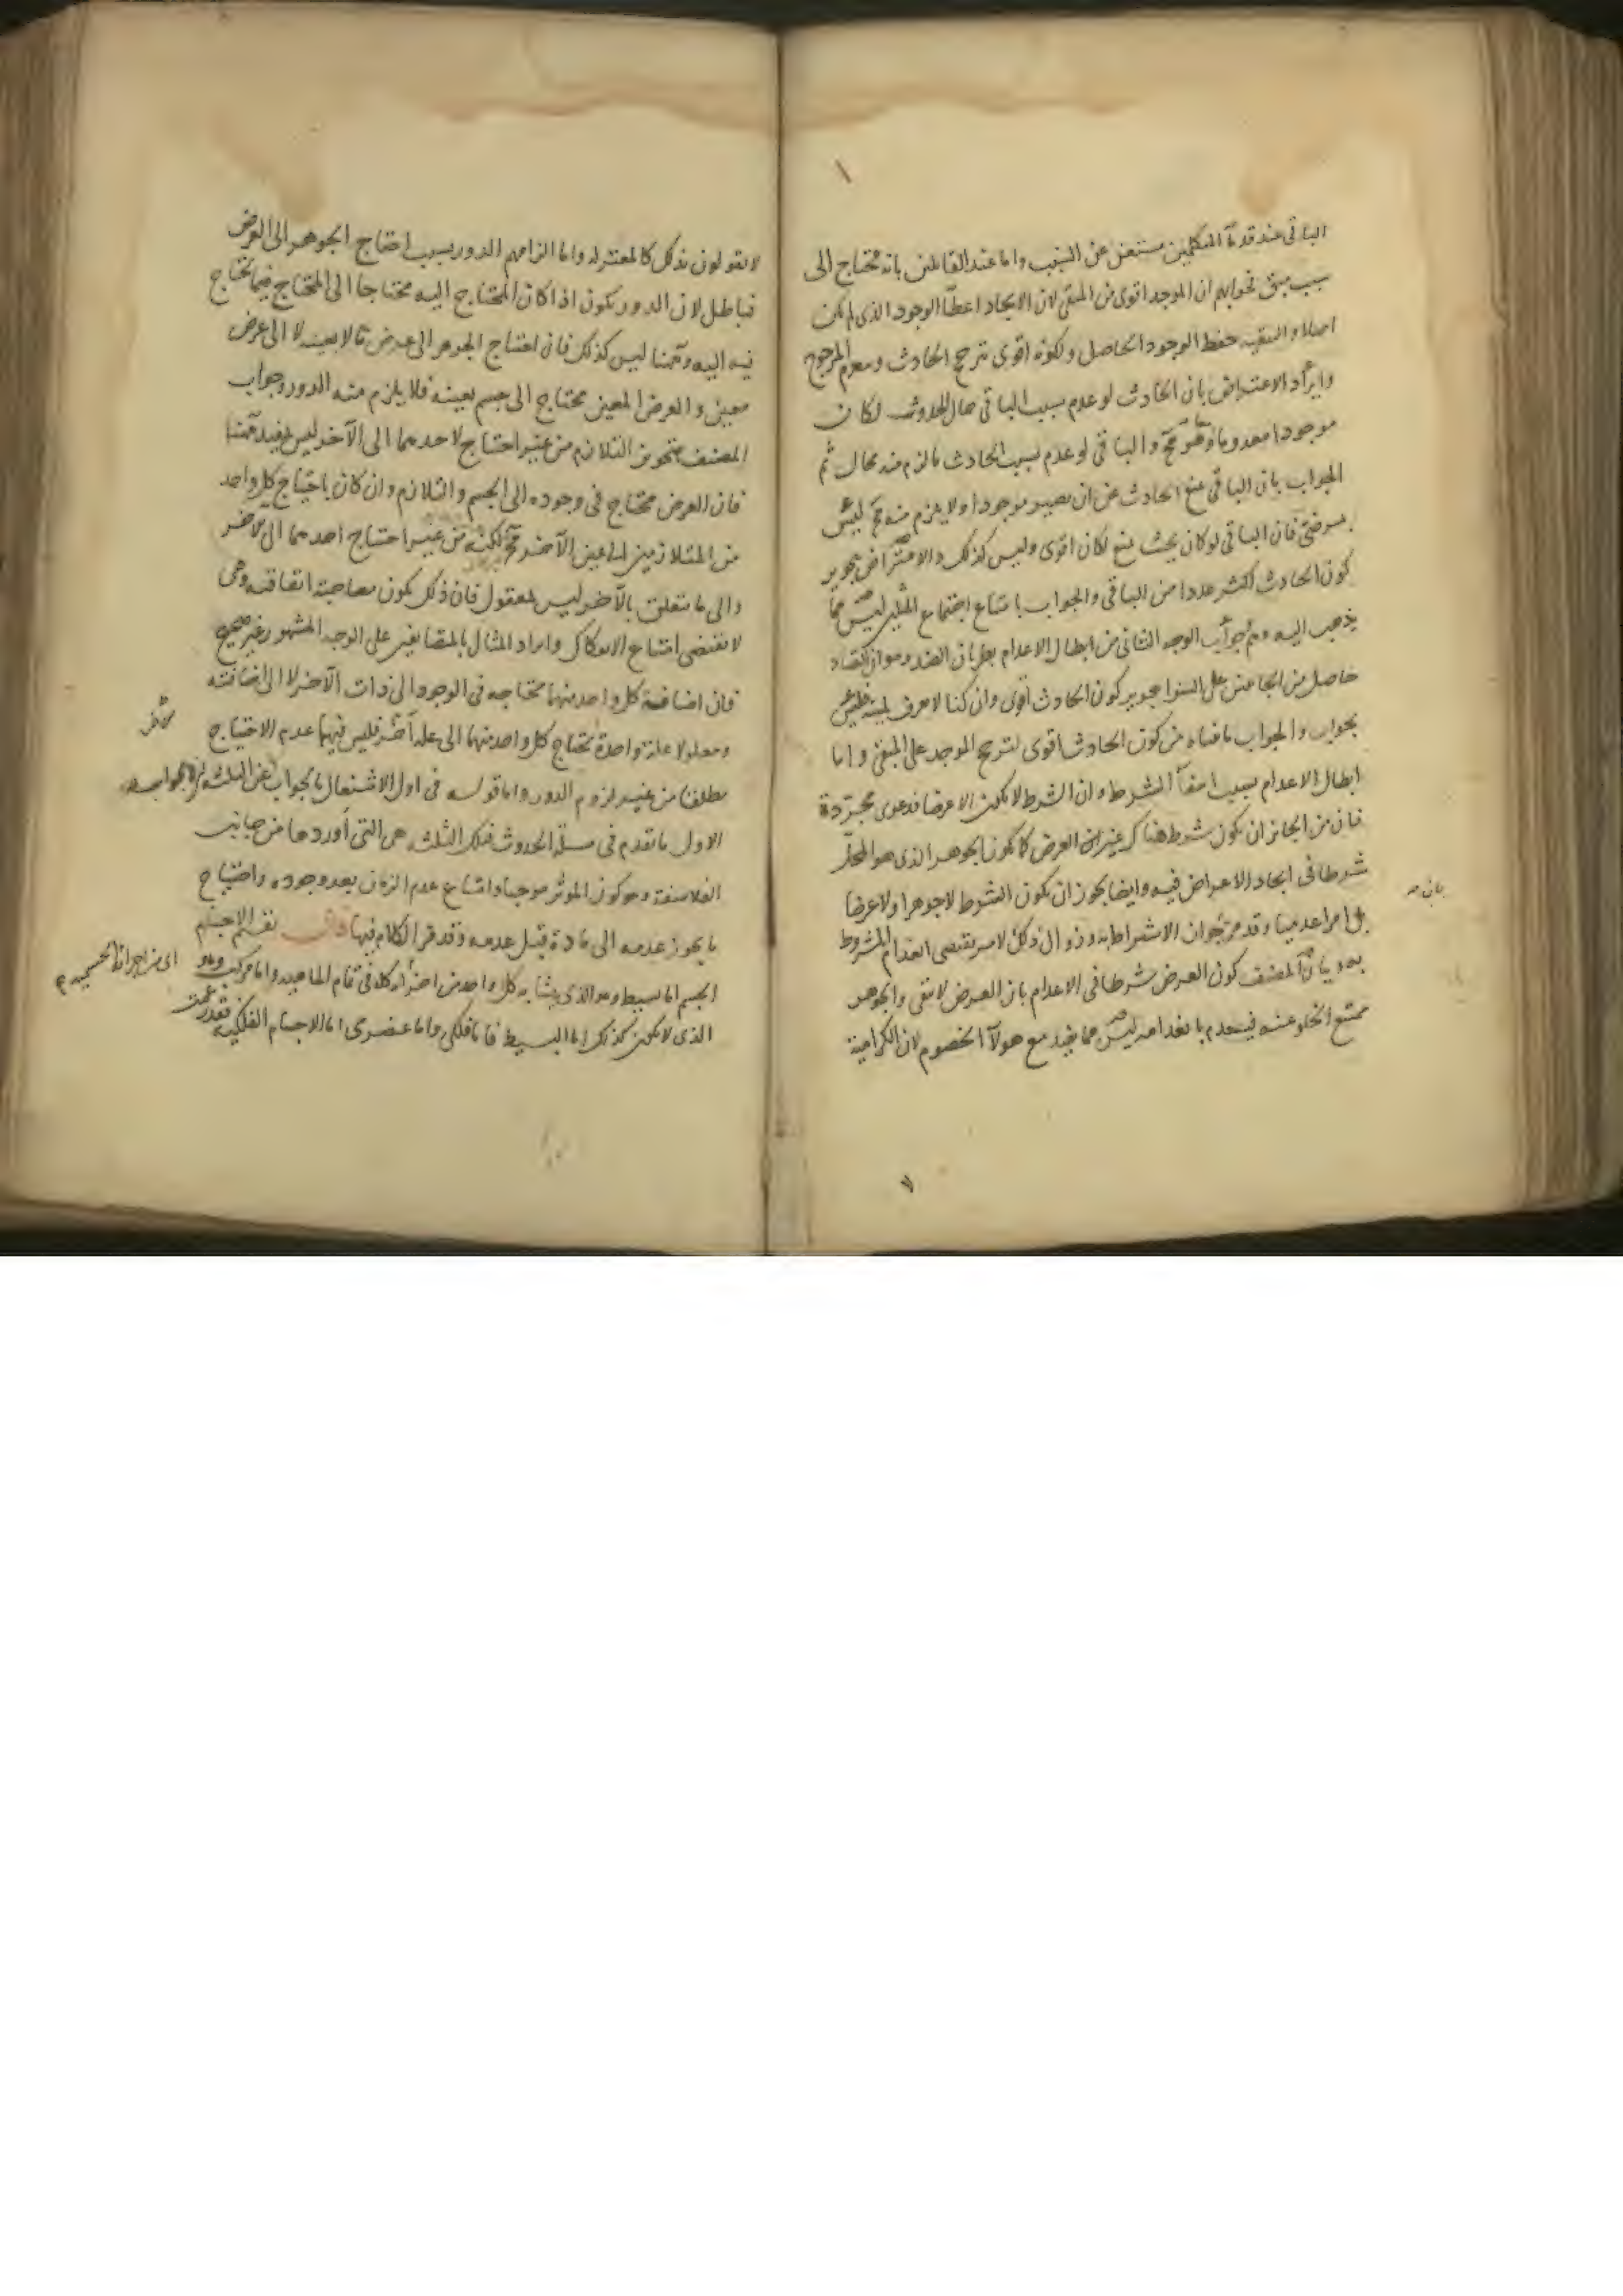 الباقى عند قدمآ المتكلمين مستغن عن السبب واما عند القائلين بانه محتاج الى
سبب مبق فجوابهم ان الموجد اقوى من المبقى لان الايجاد اعطآ الوجود الذى لم يكن
اصلا و التبقيه حفظ الوجود الحاصل ولكونه اقوى ترجح الحادث وينعدم المرجوح
وايراد الاعتراض بان الحادث لو عدم بسبب الباقى حال الحدوث لكان
موجودا معدوما وهو مح والباقى لو عدم بسبب الحادث ما لزم منه محال ثم
الجواب بان الباقى يمنع الحادث عن ان يصير موجودا ولا يلزم منه مح ليس
بمرضى فان الباقى لو كان بحيث يمنع لكان اقوى وليس كذلك والاعتراض بتجويز
كون الحادث اكثر عددا من الباقى والجواب بامتناع اجتماع المثلين ليس مما
يذهب اليه وهم وجواب الوجه الثانى من ابطال الاعدام بطريان الضد وهو ان التضاد
حاصل من الجانبين على السوا بتجويز كون الحادث اقوى وان كنا لا نعرف لميته فليس
بجواب والجواب ما قلناه من كون الحادث اقوى لترجح الموجد على المبقى واما
ابطال الاعدام بسبب انتفآ الشرط وان الشرط لا يكون الا عرضا فدعوى مجردة
فان من الجائز ان يكون شرط هناك غير العرض كما يكون الجوهر الذى هو المحل
شرطا فى ايجاد الاعراض فيه وايضا يجوز ان يكون الشرط لا جوهرا ولا عرضا
بل امرا عدميا وقد مر جواز الاشتراط به وزوال ذلك الامر يقتضى انعدام المشروط
به وبيان المصنف كون العرض شرطا فى الاعدام بان العرض لا يبقى والجوهر
ممتنع الخلو عنه فينعدم بانعدامه ليس مما يفيد مع هولآ الخصوم لان الكرامية
بان
لا يقولون بذلك كالمعتزله واما الزامهم الدور بسبب احتياج الجوهر الى العرض
فباطل لان الدور يكون اذا كان المحتاج اليه محتاجا الى المحتاج فيما يحتاج
فيه اليه وههنا ليس كذلك فان احتياج الجوهر الى عرض ما لا بعينه لا الى عرض
معين والعرض المعين محتاج الى جسم بعينه فلا يلزم منه الدور وجواب
المصنف بتجويز التلازم من غير احتياج لاحدهما الى الآخر ليس بمفيد ههنا
فان العرض محتاج فى وجوده الى الجسم والتلازم وان كان باحتياج كل واحد
من المتلازمين الى عين الآخر مح لكنه من غير احتياج احدهما الى الآخر
والى ما يتعلق بالآخر ليس بمعقول فان ذلك يكون مصاحبة اتفاقيه وهى
لا تقتضى امتناع الانفكاك وايراد المثال بالمتضايفين على الوجه المشهور غير صحيح
فان اضافة كل واحد منهما محتاجه فى الوجود الى ذات الآخر لا الى اضافته
ومعلولا علة واحدة يحتاج كل واحد منهما الى علة آخر فليس فيهما عدم الاحتياج
مطلقا من غير لزوم الدور واما قوله فى اول الاشتغال بالجواب عن الثلث
الاول ما تقدم فى مسئلة الحدوث فتلك الثلث هى التى أوردها من جانب
الفلاسفة وهو كون الموثر موجبا وامتناع عدم الزمان بعد وجوده واحتياج
ما يجوز عدمه الى مادة قبل عدمه وقد مر الكلام فيها قال تقسيم الاجسام
الجسم اما بسيط وهو الذى يشابه كل واحد من اجزآئه كله فى تمام الماهيه واما مركب وهو
الذى لا يكون كذلك اما البسيط فاما فلكى واما عنصرى اما الاجسام الفلكيه فقد زعمت
اى من اجزائه الجسميه